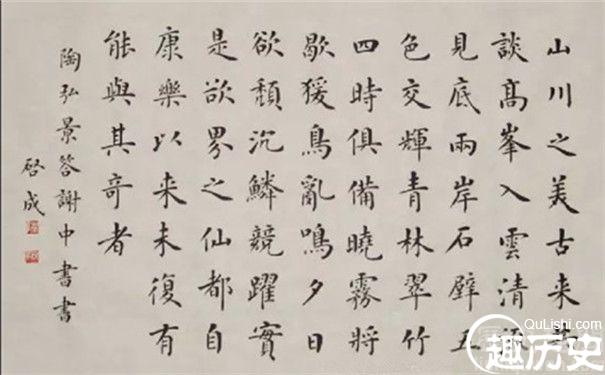 山川之美古来
談高峯入雲清流
見底兩岸石壁五
色交輝青林翠竹
四時俱備曉霧將
歇猨鳥亂鳴夕日
欲頹沉鱗競躍實
是欲界之仙都自
康樂以来未復有
能與其奇者
陶弘景答謝中書書
啓成
QuLishi.com
趣历史